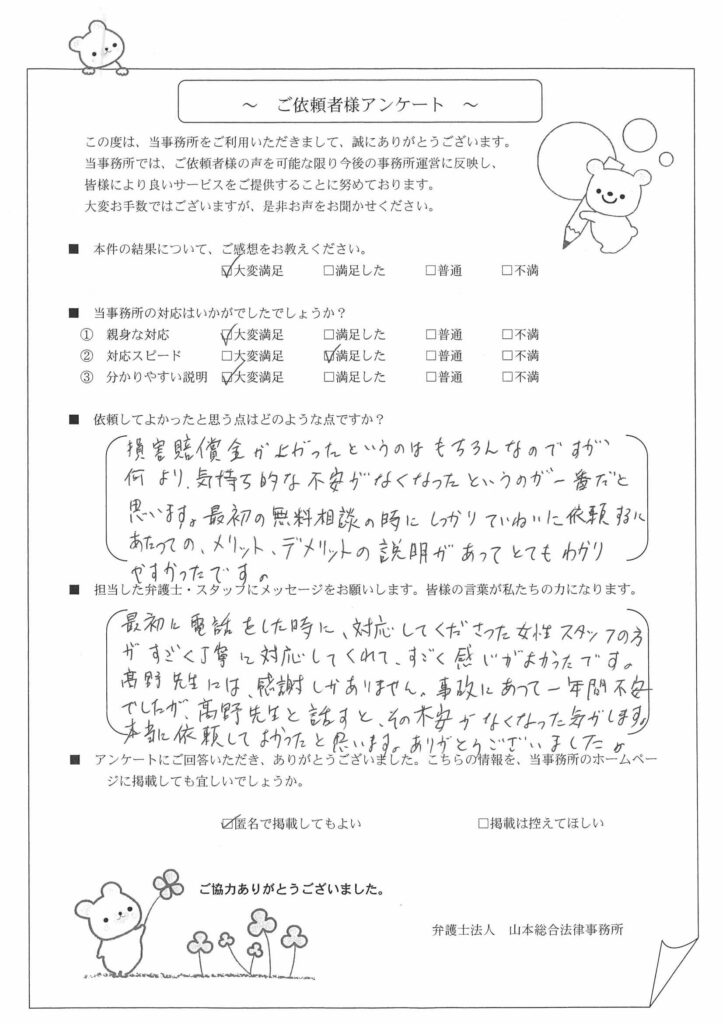 ～ ご依頼者様アンケート ～
この度は、当事務所をご利用いただきまして、誠にありがとうございます。
当事務所では、ご依頼者様の声を可能な限り今後の事務所運営に反映し、
皆様により良いサービスをご提供することに努めております。
大変お手数ではございますが、是非お声をお聞かせください。
■ 本件の結果について、ご感想をお教えください。
☑大変満足 □満足した □普通 □不満
■ 当事務所の対応はいかがでしたでしょうか？
① 親身な対応 ☑大変満足 □満足した □普通 □不満
② 対応スピード □大変満足 ☑満足した □普通 □不満
③ 分かりやすい説明 ☑大変満足 □満足した □普通 □不満
■ 依頼してよかったと思う点はどのような点ですか？
損害賠償金が上がったというのはもちろんなのですが
何より、気持ち的な不安がなくなったというのが一番だと
思います。最初の無料相談の時にしっかりていねいに依頼するに
あたっての、メリット、デメリットの説明があってとてもわかり
やすかったです。
■ 担当した弁護士・スタッフにメッセージをお願いします。皆様の言葉が私たちの力になります。
最初に電話をした時に、対応してくださった女性スタッフの方
がすごく丁寧に対応してくれて、すごく感じがよかったです。
髙野先生には、感謝しかありません。事故にあって一年間不安
でしたが、髙野先生と話すと、その不安がなくなった気がします。
本当に依頼してよかったと思います。ありがとうございました。
■ アンケートにご回答いただき、ありがとうございました。こちらの情報を、当事務所のホームペー
ジに掲載しても宜しいでしょうか。
☑匿名で掲載してもよい □掲載は控えてほしい
ご協力ありがとうございました。
弁護士法人 山本総合法律事務所